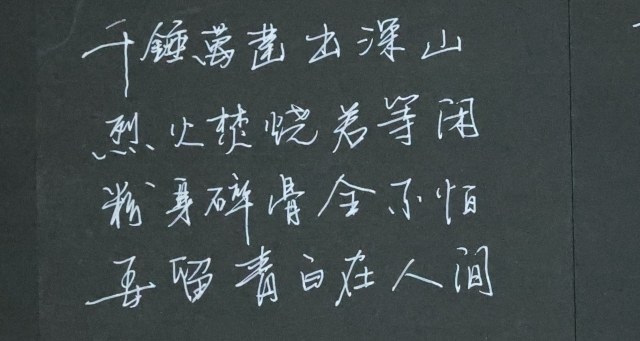 千錘萬凿出深山
烈火焚烧若等闲
粉身碎骨全不怕
要留青白在人间